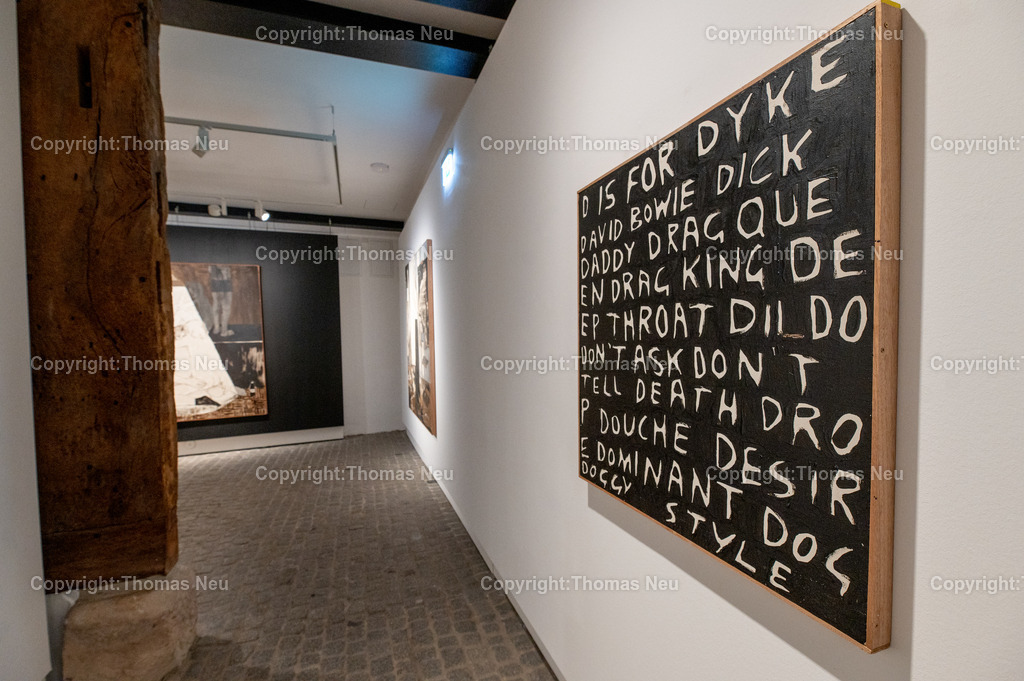 D IS FOR DYKE
DAVID BOWIE DICK
DADDY DRAG QUE
EN DRAG KING DE
EP THROAT DILDO
DON'T ASK DON'T
TELL DEATH DRO
P DOUCHE DESIR
E DOMINANT DOG
DOGGY STYLE
Copyright:Thomas Neu Copyright:Thomas Neu Copyright:Thomas Neu
Copyright:Thomas Neu Copyright:Thomas Neu Copyright:Thomas Neu
Copyright:Thomas Neu Copyright:Thomas Neu
Copyright:Thomas Neu Copyright:Thomas Neu Copyright:Thomas Neu
Copyright:Thomas Neu Copyright:Thomas Neu
Copyright:Thomas Neu Copyright:Thomas Neu Copyright:Thomas Neu